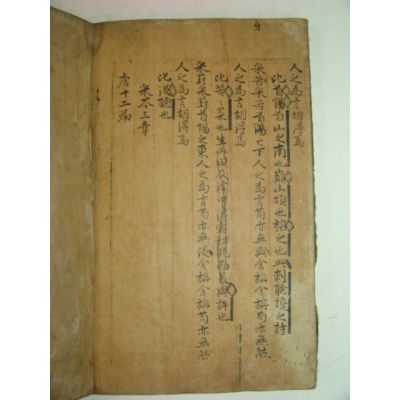 人之為言胡得焉
比也首陽首山之南也巔山頂也旃之也此刺聽讒之詩
采苦采苦首陽之下人之為言苟亦無與舍旃舍旃苟亦無然
人之為言胡得焉
比也苦苦菜也生山田及澤中得霜甜脆而美與許也
采葑采葑首陽之東人之為言苟亦無從舍旃舍旃苟亦無然
人之為言胡得焉
比也從聽也
采苓三章
唐十二篇